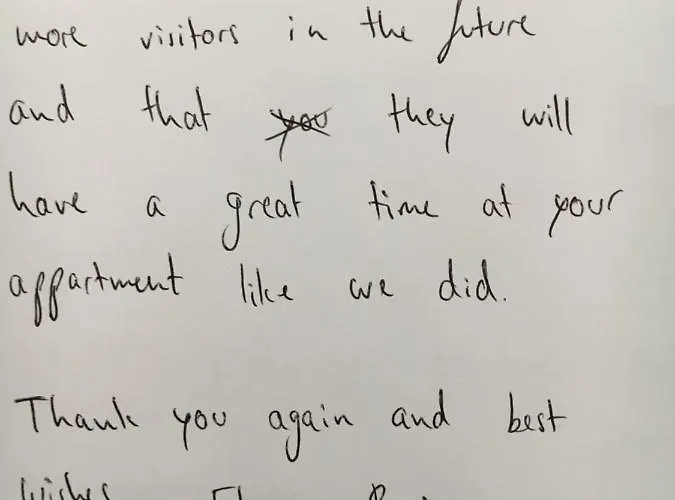 more visitors in the future
and that you they will
have a great time at your
appartment like we did.
Thank you again and best
wishes